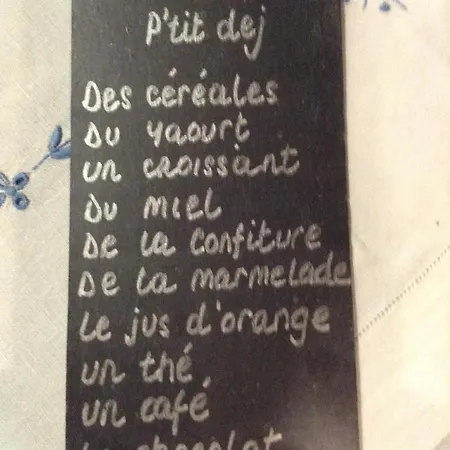 P'tit dej
Des céréales
Du yaourt
un croissant
Du miel
De la confiture
De la marmelade
Le jus d'orange
un thé
un café
Le chocolat